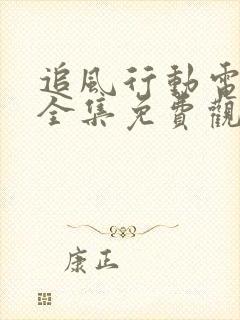 追風行動電
全集免費觀
康正